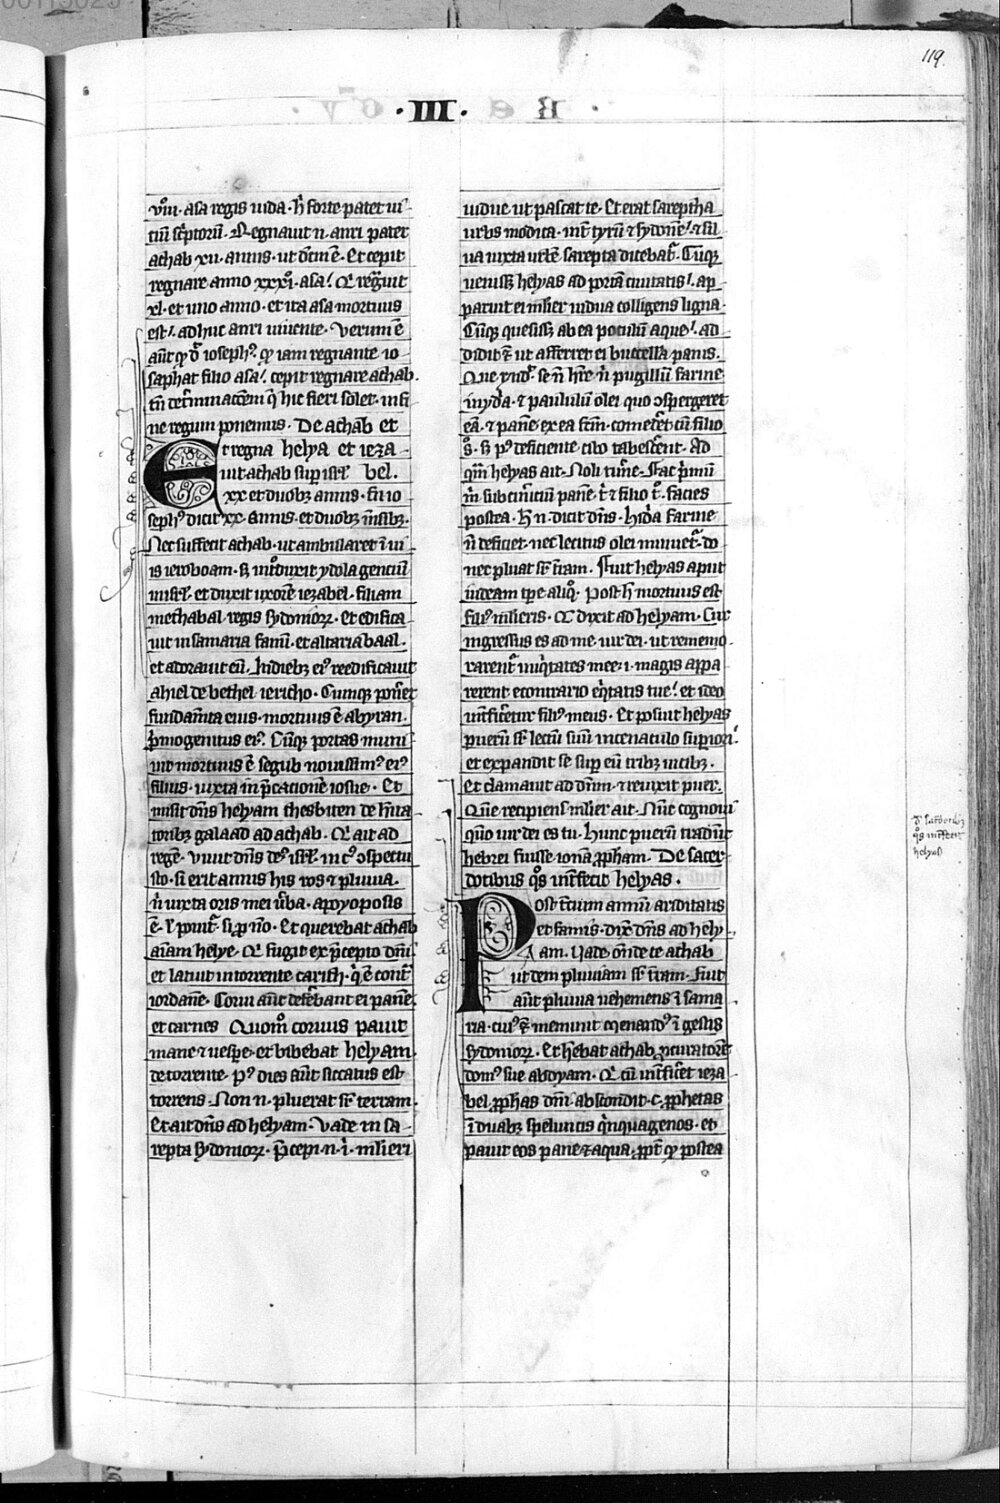 119.
·III·
vᵒm· asa regis iuda· h̄ forte patet ui
ciū sc̄ptorū· Regnauit n̄· amri pater
achab xii· annis· ut dc̄m ē· Et cepit
regnare anno xxxiᵒ· asa· Et regͣuit
xl· et uno anno· et ita asa mortuus
est· adhuc amri uiuente· Verum ē
aūt qd̓ iosephꝰ· qͥ iam regnante io
saphat filio asa· cepit regnare achab·
ne regum ponemus· De achab et
Et regna helya et ieza
uit achab suꝑ isrl̄ bel·
xx et duobꝫ annis· sn̄ io
sephꝰ dicit xx· annis· et duobꝫ m̄sibꝫ·
Nec suffecit achab· ut ambularet ī ui
is ieroboam· sꝫ intᵒduxit ydola gentiū
in isrl̄· et duxit uxorē iezabel· filiam
methabal regis sydonioꝝ· Et edifica
uit in samaria fanū· et altaria baal·
et adorauit eū· In diebꝫ eiꝰ reedificauit
ahiel de bethel iericho· Cumqꝫ pon̄et
fundam̄ta eius· mortuus ē abyran·
p̄mogenitus eiꝰ· Cūqꝫ portas muni
uit mortuus ē segub nouissimꝰ eiꝰ
filius· iuxta imp̄cationē iosue· Et
misit dn̄s helyam thesbiten de h̄ita
toribꝫ galaad ad achab· Et ait ad
regē· Viuit dn̄s deꝰ isrl̄· in cꝰ ↄspectu
sto· si erit annis his ros ⁊ pluuia·
n̄ iuxta oris mei u̓ba· apoyoposis
ē· Et querebat achab
aīam helye· Et fugit ex p̄cepto dn̄i
et latuit in torrente carith· qͥ ē contͣ
iordanē· Corui aūt defēbant ei panē
et carnes Quomᵒ coruus pauit
mane ⁊ uesꝑe· et bibebat helyam
de torrente· Pꝰ dies aūt siccatus est
torrens· Non n̄· pluerat sr̄ terram·
Et ait dn̄s ad helyam· Vade in sa
repta sydonioꝝ· P̄cepi· n̄· ī· mlieri
uidue ut pascat te· Et erat sareptha
urbs modica· int̓ tyrū ⁊ sydonē· ⁊ sil
ua iuxta urbē sarepta dicebat̓· Cūqꝫ
uenissꝫ helyas ad portā ciuitatis· ap
paruit ei mlier uidua colligens ligna·
Cūqꝫ quesissꝫ ab ea poculū aque· ad
didit ⁊ ut afferret ei buccellā panis·
Que rn̄d̓· se n̄ hr̄e n̄ pugillū farine
in yd̓a· ⁊ paululū olei quo ↄspergeret
eā· ⁊ panē ex ea fc̄m· comedet̓ cū filio
sᵒ· ⁊ sꝫ pꝰ deficiente cibo tabesc̄ent· Ad
qͣm helyas ait· Noli tim̓e· Fac p̄mū
m̄ subcin̄iciū panē· t̓ ⁊ filio tᵒ· facies
postea· H̄ n̄· dicit dn̄s· hid̓a farine
n̄ deficiet· nec lecitus olei minuet̓· do
nec pluat sr̄ t̄ram· Fuit helyas apud
uiduam tꝑe aliqᵒ· Post h̄ mortuus est
filiꝰ mlieris· Et dixit ad helyam· Cur
ingressus es ad me· uir dei· ut rememo
rarent̓ iniqͥtates mee· i· magis appa
rerent e contrario eqͥtatis tue· et ideo
int̓ficeret̓ filiꝰ meus· Et posuit helyas
puerū sr̄ lectū suū in cenaculo superiori·
et expandit se suꝑ eū tribꝫ uicibꝫ·
Et clamauit ad dn̄m· ⁊ reuixit puer·
Quē recipiens mlier ait· Nūc cognoui
qͫo uir dei es tu· Hunc puerū tradūt
hebrei fuisse ionā ꝓpham· De sacer
dotibus qͦs int̓fecit helyas·
Post t̓cium annū ariditatis
et famis· dix̓ dn̄s ad hely
am· Vade on̄de te achab
ut dem pluuiam sr̄ t̄ram· Fuit
aūt pluuia uehemens ī sama
ria· cuiꝰ ⁊ meminit menandꝰ ī gestis
sydonioꝝ· Et h̄ebat achab ꝓcuratorē
domꝰ sue abdyam· Qͥ cū int̓fic̓et ieza
bel ꝓphas dn̄i· abscondit· c· ꝓphetas
ī duabꝫ speluncis qͥnquagenos· et
pauit eos pane ⁊ aqua· ꝓpt̓ qd̓ postea
d̓ sacerdotibꝫ
qͦs int̓fecit
helyas